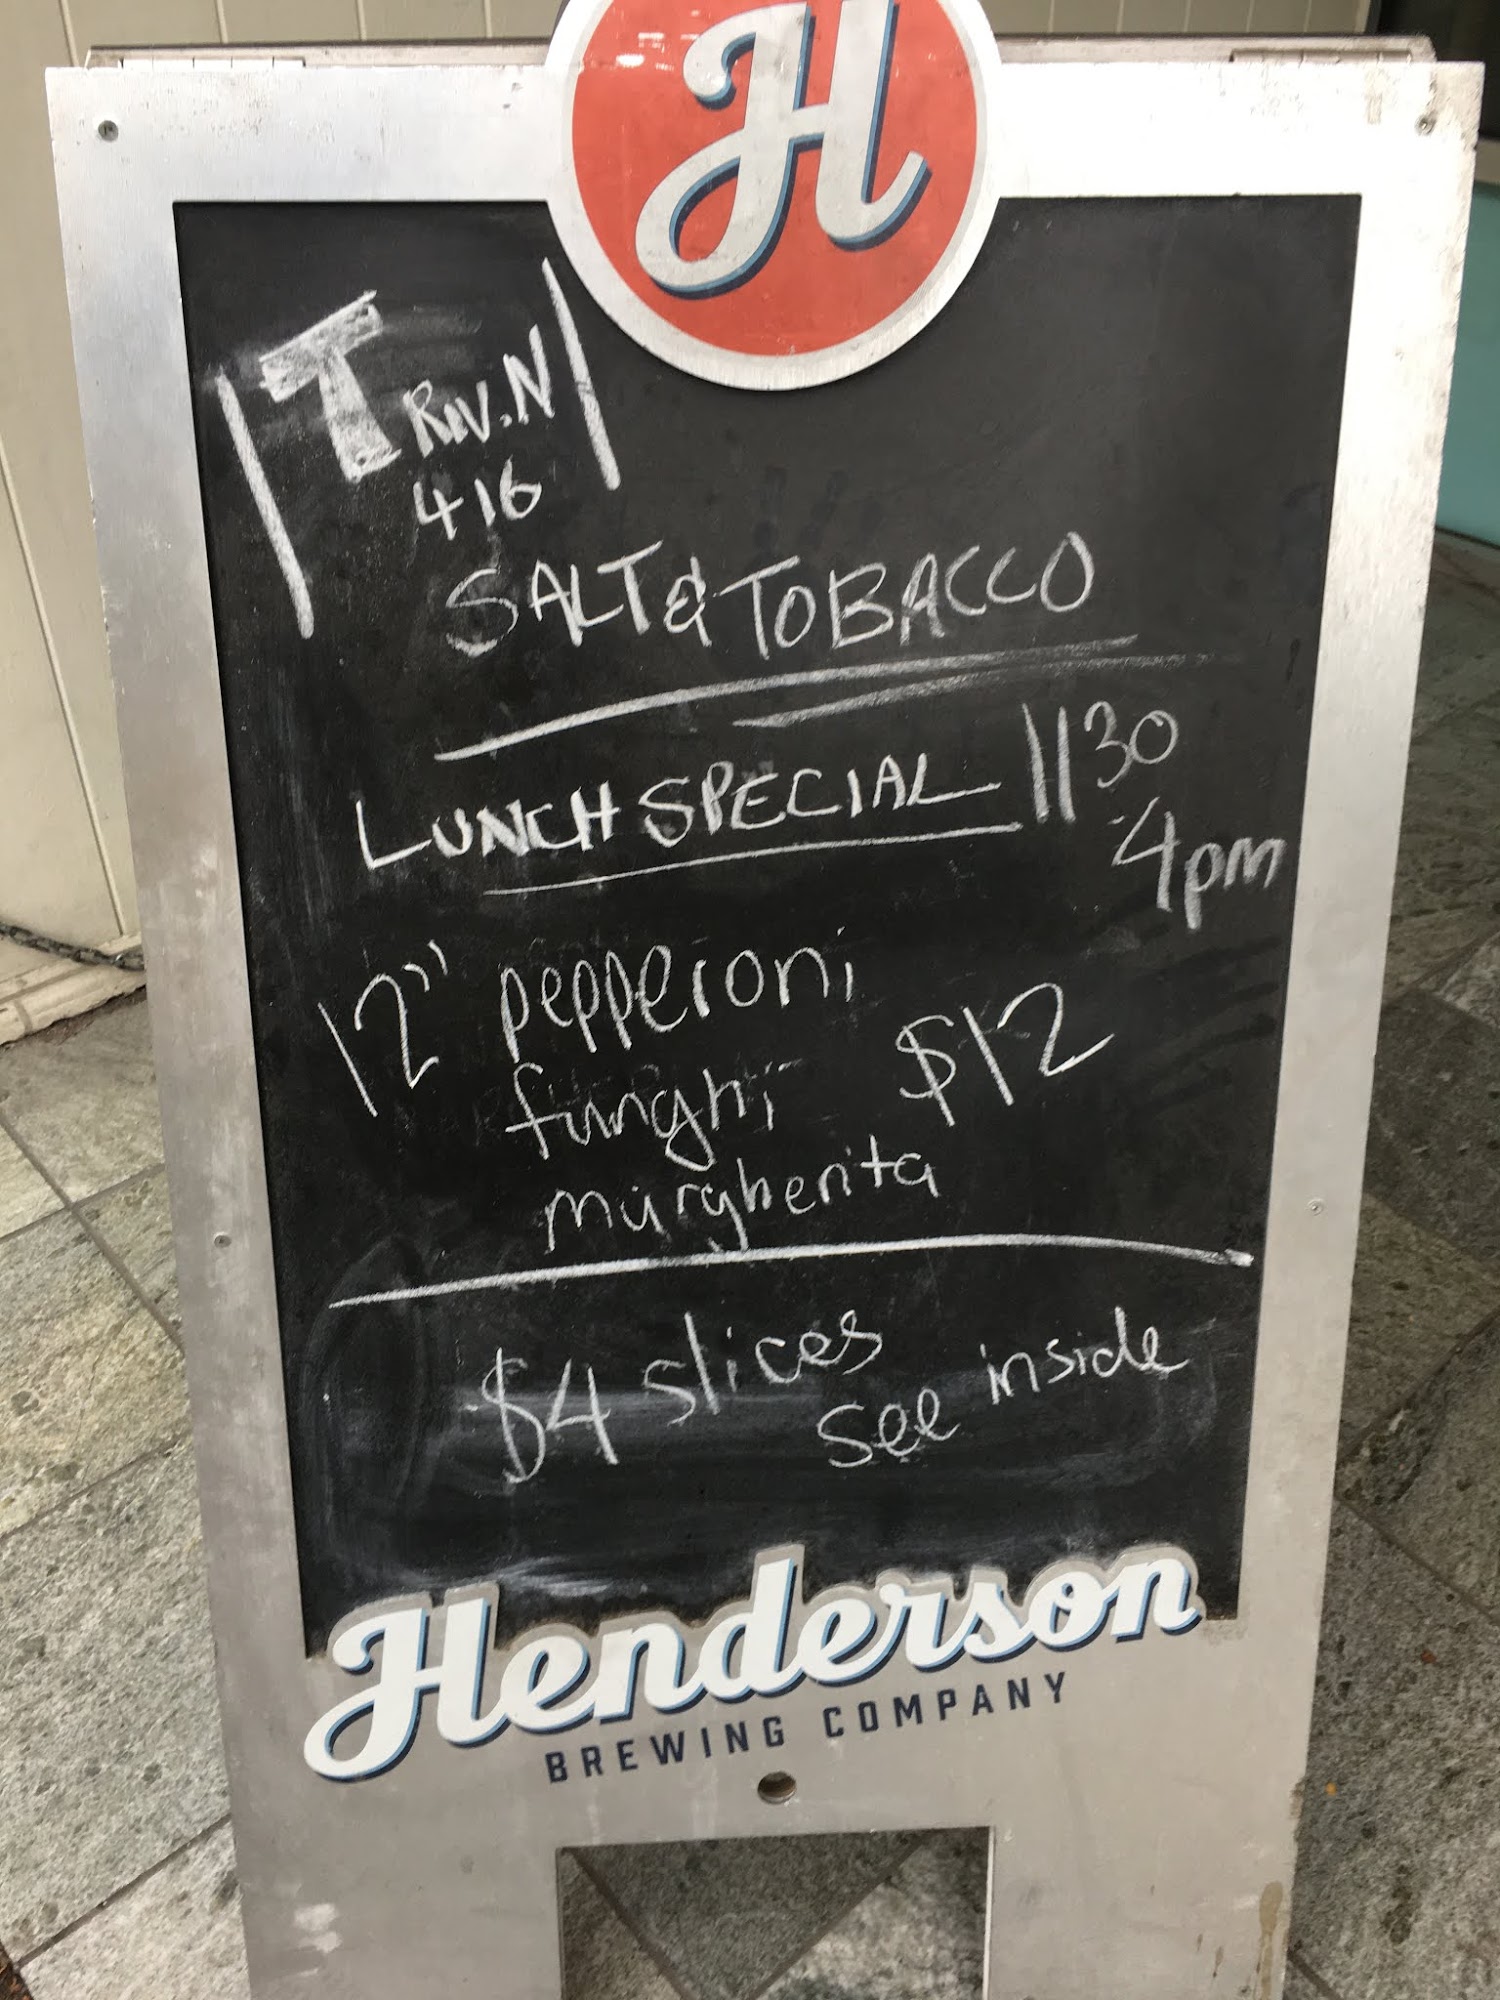 H
T RIV.N
416
SALT & TOBACCO
LUNCH SPECIAL 1130
-4pm
12" pepperoni
funghi $12
margherita
$4 slices
see inside
Henderson
BREWING COMPANY